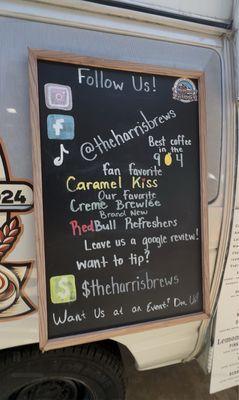 Follow Us!
@theharrisbrews
Best coffee
in the
904
fan favorite
Caramel Kiss
Our Favorite
Creme Brewlee
Brand New
RedBull Refreshers
Leave us a google review!
want to tip?
$theharrisbrews
Want Us at an Event? Dm Us!
24